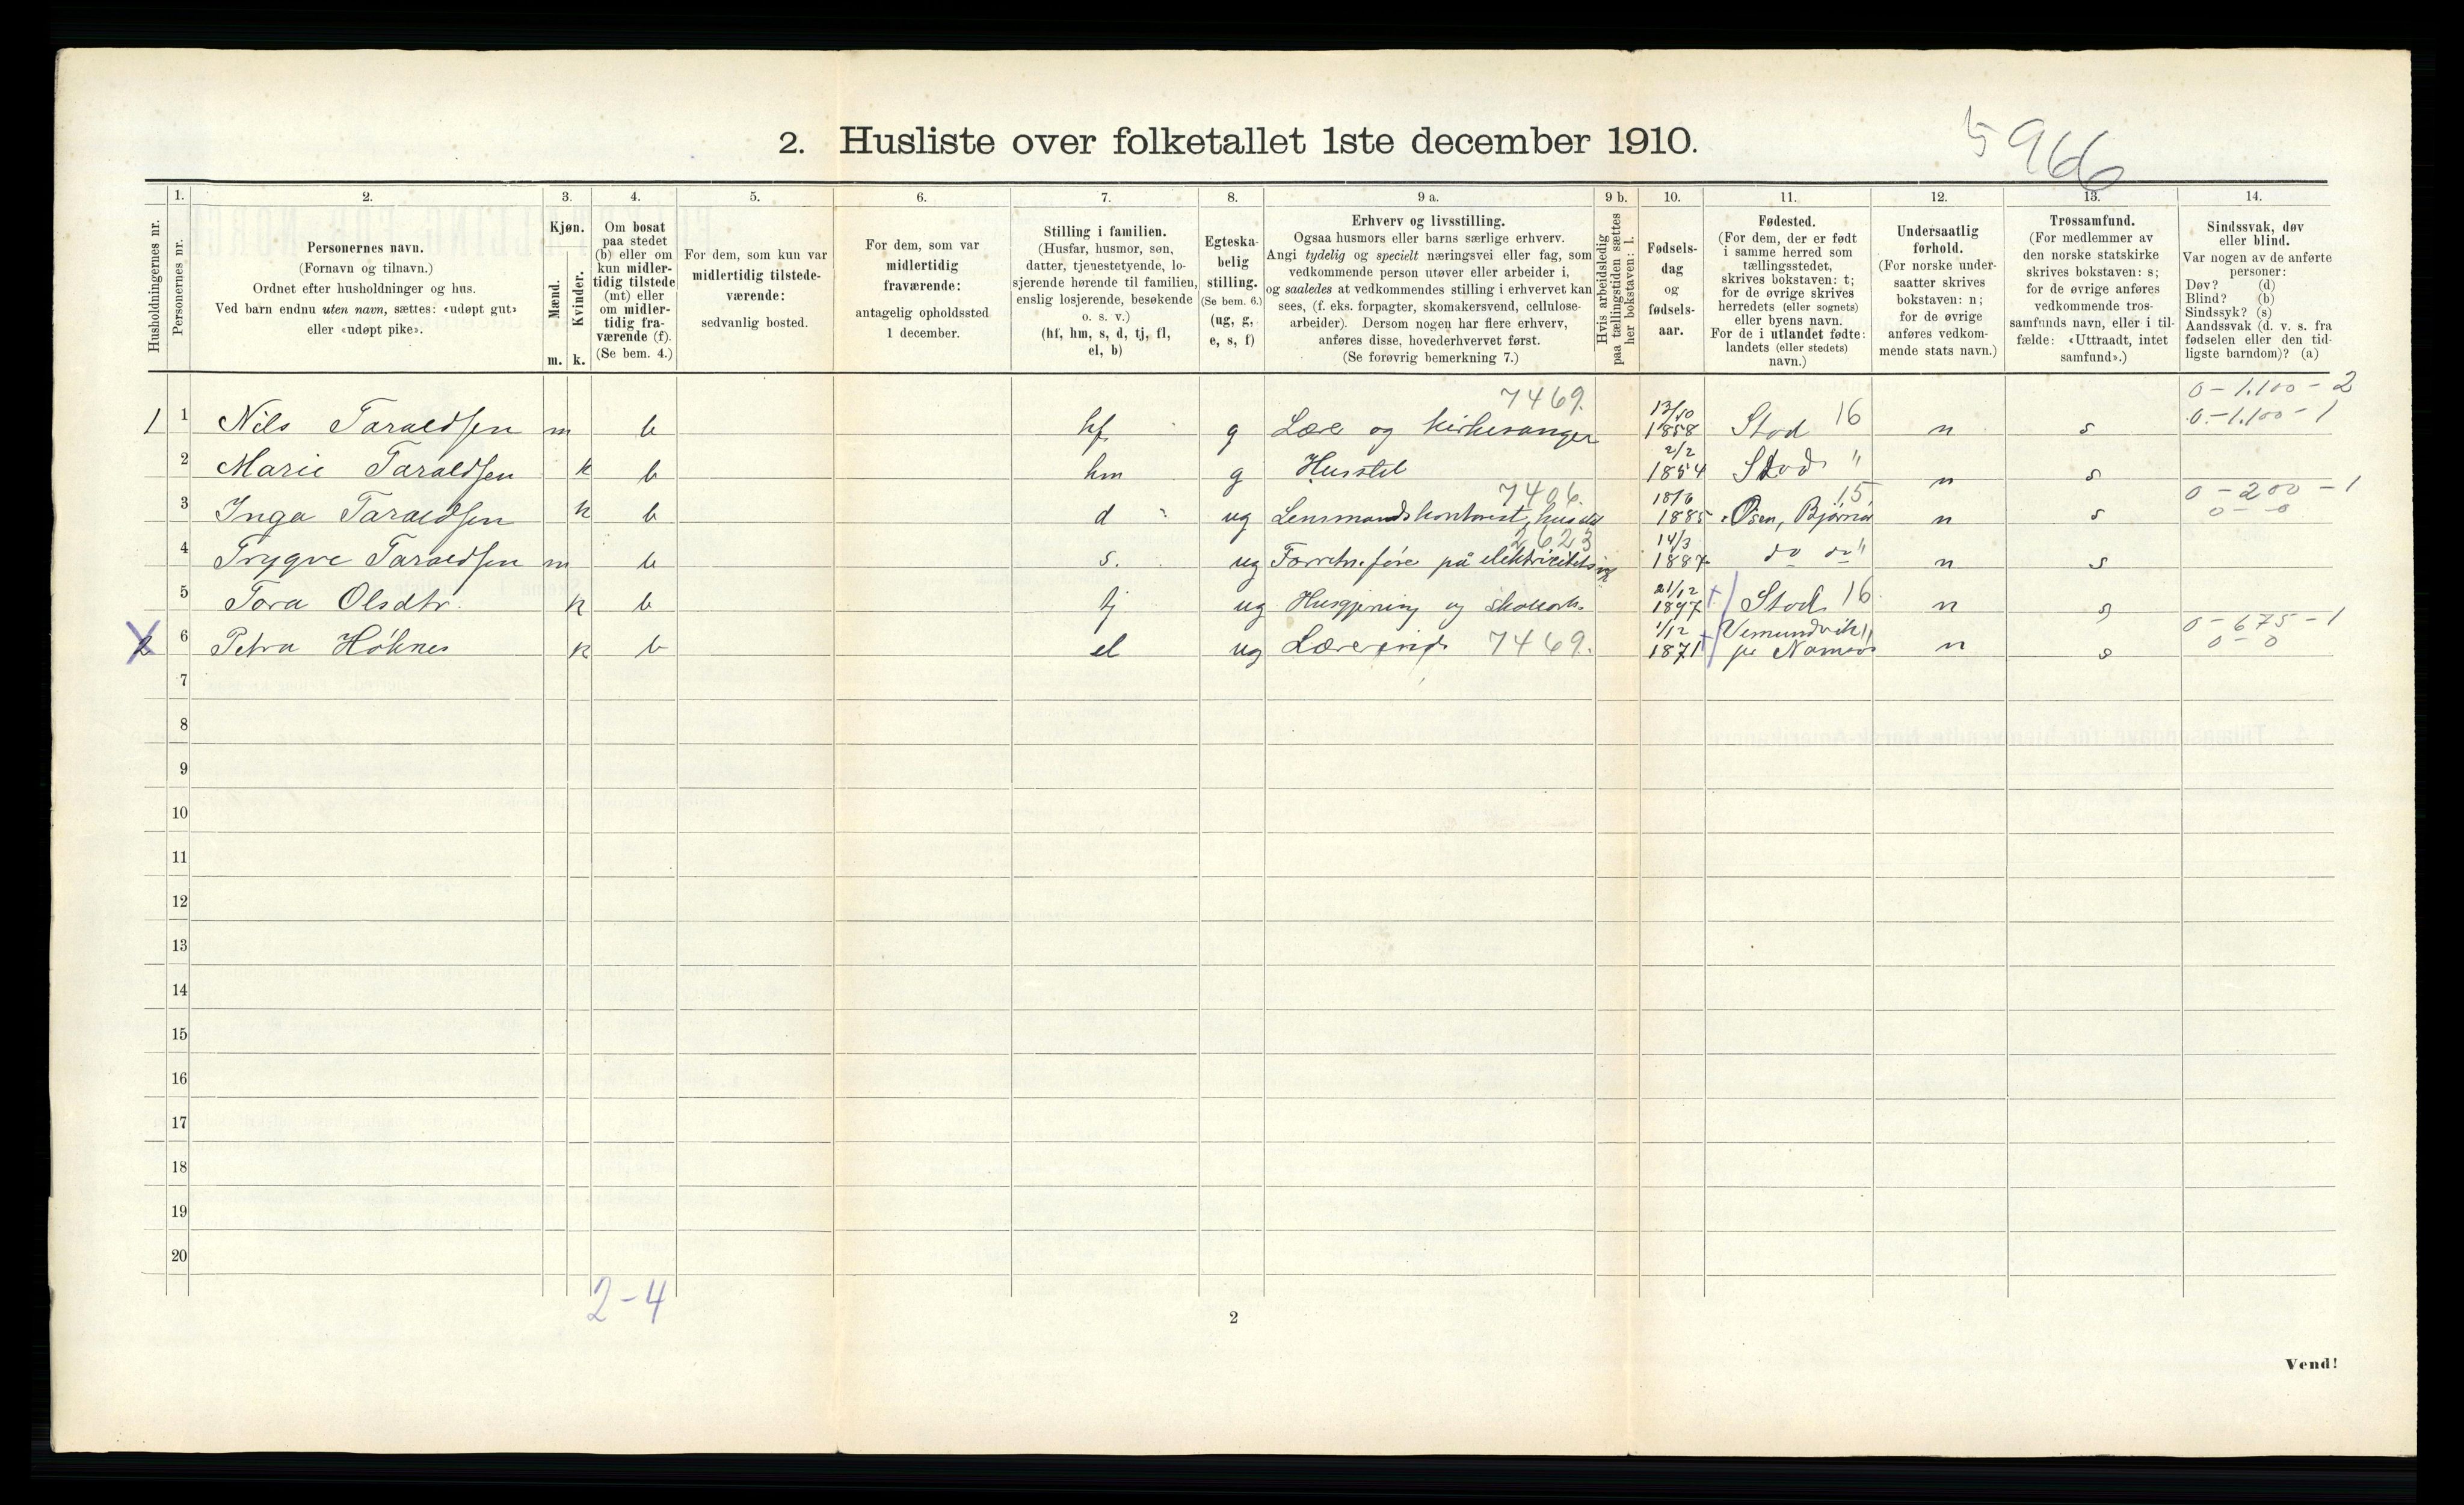 5966
2. Husliste over folketallet 1ste december 1910.
Husholdningernes nr.
1.
Personernes nr.
2.
Personernes navn.
(Fornavn og tilnavn.)
Ordnet efter husholdninger og hus.
Ved barn endnu uten navn, sættes: «udøpt gut»
eller «udøpt pike».
3.
Kjøn.
Mænd.
Kvinder.
m. k.
4.
Om bosat
paa stedet
(b) eller om
kun midler-
tidig tilstede
(mt) eller
om midler-
tidig fra-
værende (f).
(Se bem. 4.)
5.
For dem, som kun var
midlertidig tilstede-
værende:
sedvanlig bosted.
6.
For dem, som var
midlertidig
fraværende:
antagelig opholdssted
1 december.
7.
Stilling i familien.
(Husfar, husmor, søn,
datter, tjenestetyende, lo-
sjerende hørende til familien,
enslig losjerende, besøkende
o. s. v.)
(hf, hm, s, d, tj, fl,
el, b)
8.
Egteska-
belig
stilling.
(Se bem. 6.)
(ug, g,
e, s, f)
9 a.
Erhverv og livsstilling.
Ogsaa husmors eller barns særlige erhverv.
Angi tydelig og specielt næringsvei eller fag, som
vedkommende person utøver eller arbeider i,
og saaledes at vedkommendes stilling i erhvervet kan
sees, (f. eks. forpagter, skomakersvend, cellulose-
arbeider). Dersom nogen har flere erhverv,
anføres disse, hovederhvervet først.
(Se forøvrig bemerkning 7.)
9 b.
Hvis arbeidsledig
paa tællingstiden sættes
her bokstaven: l.
10.
Fødsels-
dag
og
fødsels-
aar.
11.
Fødested.
(For dem, der er født
i samme herred som
tællingsstedet,
skrives bokstaven: t;
for de øvrige skrives
herredets (eller sognets)
eller byens navn.
For de i utlandet fødte:
landets (eller stedets)
navn.)
12.
Undersaatlig
forhold.
(For norske under-
saatter skrives
bokstaven: n;
for de øvrige
anføres vedkom-
mende stats navn.)
13.
Trossamfund.
(For medlemmer av
den norske statskirke
skrives bokstaven: s;
for de øvrige anføres
vedkommende tros-
samfunds navn, eller i til-
fælde: «Uttraadt, intet
samfund».)
14.
Sindssvak, døv
eller blind.
Var nogen av de anførte
personer:
Døv? (d)
Blind? (b)
Sindssyk? (s)
Aandssvak (d. v. s. fra
fødselen eller den tid-
ligste barndom)? (a)
7469. 0 - 1.100 - 2
1 1 Nils Taraldsen m b hf g Lærer og kirkesanger 13/10 1858 Stod 16 n s 0 - 1.100 - 1
2 Marie Taraldsen k b hm g Husstel 2/2 1854 Stod " n s
7406. 15 0 - 200 - 1
3 Inga Taraldsen k b d ug Lensmandskontorist, 18/6 1885 Osen, Bjørnør n s 0 - 0
2623
4 Trygve Taraldsen m b s. ug Forretn.fører på 14/3 1887 do do " n s
5 Tora Olsdtr. k b tj ug Husgjerning og 21/12 1897 Stod 16 n s
0 - 675 - 1
2 6 Petra Høknes k b el ug Lærerinde 7469. 1/12 1871 Vemundvik " pr Namsos n s 0 - 0
7
8
9
10
11
12
13
14
15
16
17
18
19
20
2-4
2
Vend!